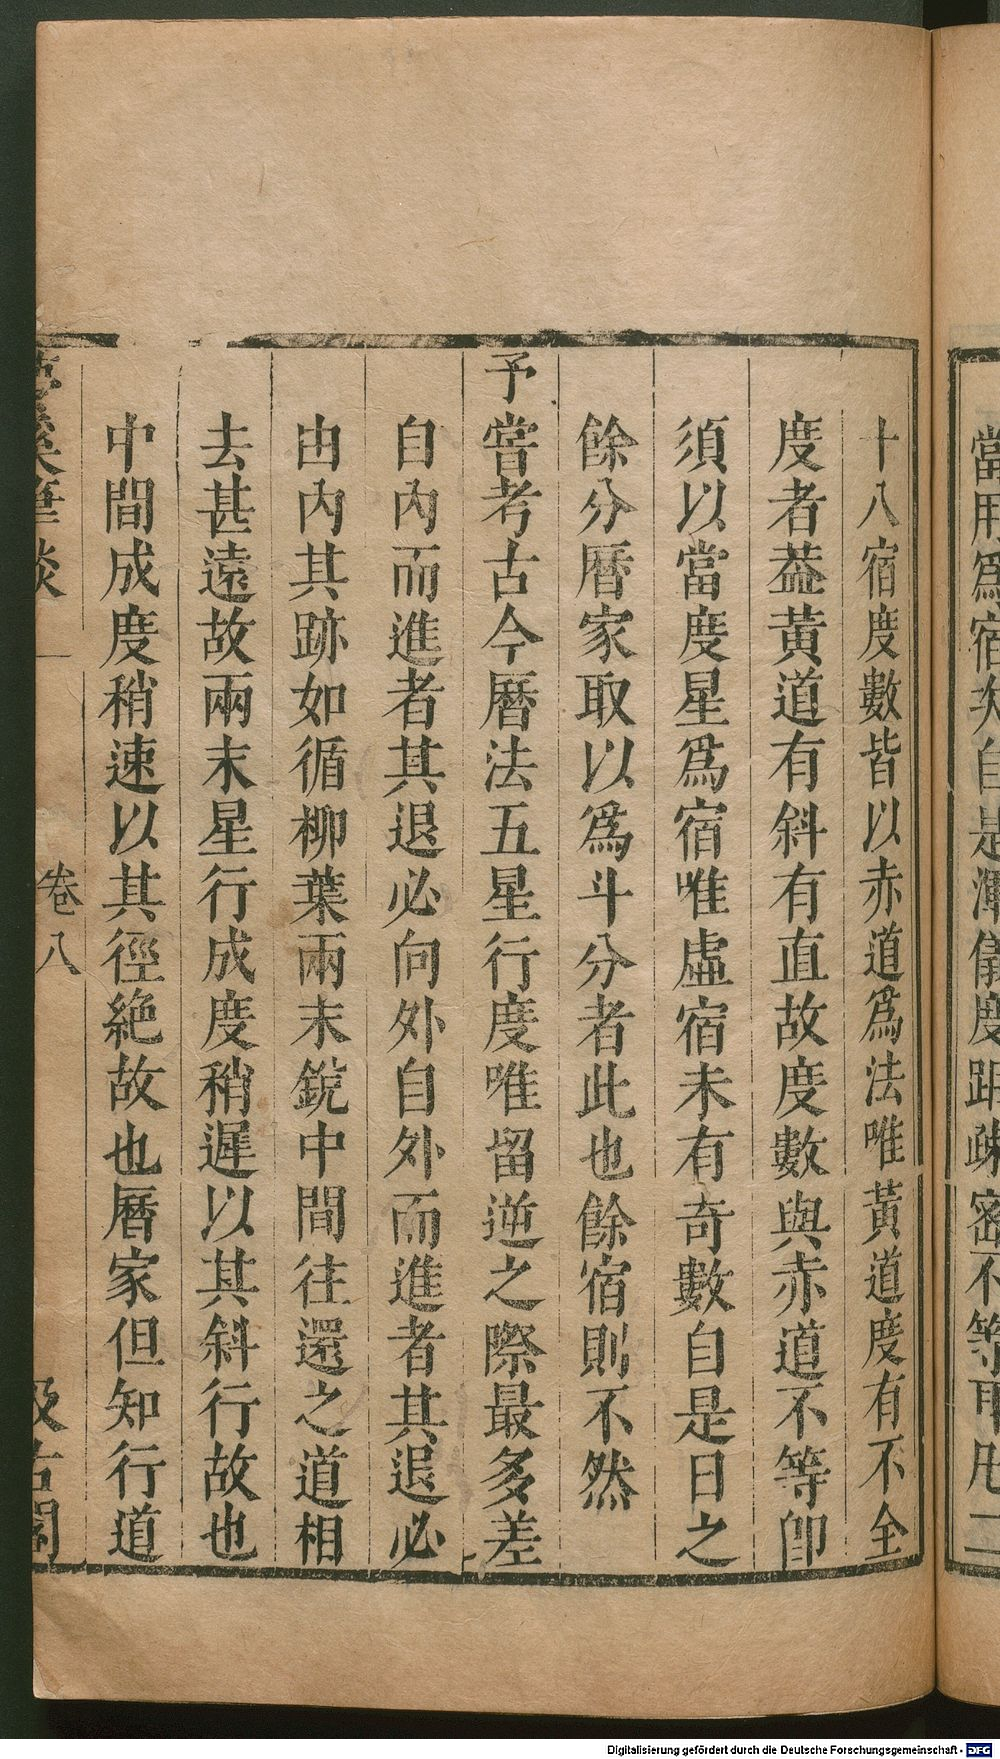 當用爲宿次自是渾儀度距疎密不等耳凡二
十八宿度數皆以赤道爲法唯黃道度有不全
度者葢黃道有斜有直故度數與赤道不等卽
須以當度星爲宿唯虛宿未有奇數自是日之
餘分曆家取以爲斗分者此也餘宿則不然
予嘗考古今曆法五星行度唯留逆之際最多差
自內而進者其退必向外自外而進者其退必
由內其跡如循柳葉兩末銳中間往還之道相
去甚遠故兩末星行成度稍遲以其斜行故也
中間成度稍速以其徑絶故也曆家但知行道
筆談 卷八 汲古閣
Digitalisierung gefördert durch die Deutsche Forschungsgemeinschaft - DFG